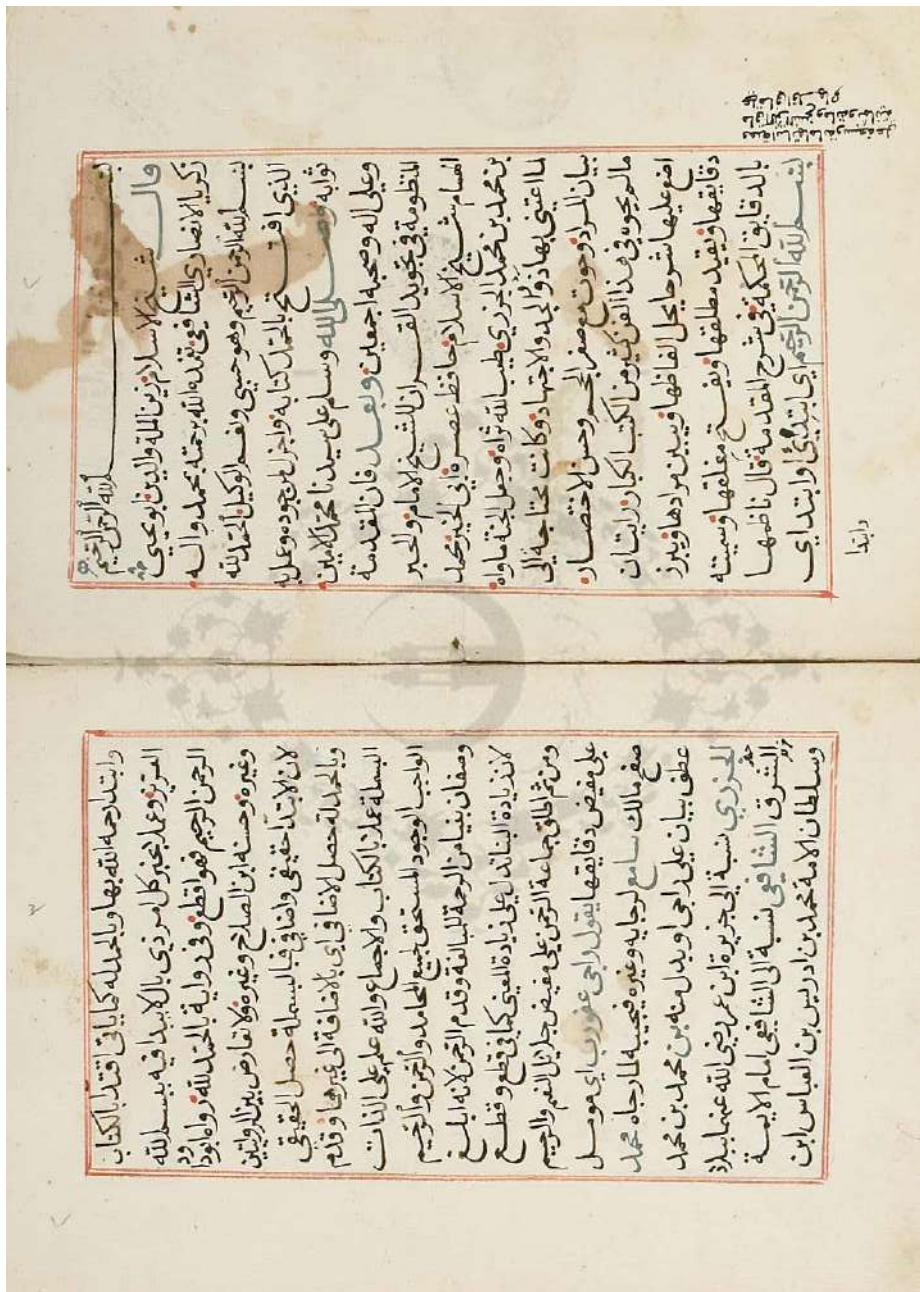 بسم الله الرحمن الرحيم
قال شيخ الاسلام زين الملة والدين ابو يحيي
زكريا الانصاري الشافعي تغمده الله برحمته بمحمد واله
بسم الله الرحمن الرحيم وهو حسبي ونعم الوكيل الحمد لله
الذي افتتح بالحمد كتابه واجزل من جوده وعمل به
ثوابه وصلى الله وسلم على سيدنا محمد الامين
وعلى اله وصحبه اجمعين وبعد فان المقدمة
المنظومة في تجويد القران للشيخ الامام والحبر
الهمام شيخ الاسلام حافظ عصره ابي الخير محمد
بن محمد بن محمد الجزري طيب الله ثراه وجعل الجنة ماواه
لما اعتني بها ذو الجد والاجتهاد وكانت محتاجة الى
بيان المراد وحوت مع صغر الحجم وحسن الاختصار
مالم يحوه في هذا الفن كثير من الكتب الكبار رايت ان
اضع عليها شرحا يحل الفاظها ويبين مرادها ويبرز
دقايقها ويقيد مطلقها ويفتح مغلقها وسميته
بالدقايق المحكمة في شرح المقدمة قال ناظمها
بسم الله الرحمن الرحيم اي ابتدئ او ابتداي
وابتدا
وابتدا رحمه الله بها وبالحمدله كما ياتي اقتدا بالكتاب
العزيز وعملا بخبر كل امر ذي بال لا يبدا فيه ببسم الله
الرحمن الرحيم فهو اقطع وفي رواية بالحمد لله رواه ابودا
ود
وغيره وحسنه ابن الصلاح وغيره ولا تعارض بين الروايتين
لان الابتدا حقيقي واضافي فبالبسملة حصل الحقيقي
وبالحمدلة حصل الاضافي اي بالاضافة الى غيرها وقدم
البسملة عملا بالكتاب والاجماع والله علم على الذات
الواجب الوجود المستحق لجميع المحامد والرحمن والرحيم
وصفان بنيا من الرحمة للمبالغة وقدم الرحمن لانه ابلغ
لان زيادة البنا تدل على زيادة المعنى كما في قطع وقطع
ومن ثم اطلق جماعة الرحمن على مفيض جلايل النعم والرحيم
على مفيض دقايقها يقول راجي عفو رب اي مومل
صفح مالك سامع لرجايه وغيره فيجيبه لما رجاه محمد
عطف بيان على راجي او بدل منه بن محمد بن محمد
الجزري نسبة الى جزيرة ابن عمر رضي الله عنهما ببلاد
الشرق الشافعي نسبة الى الشافعي امام الايمة
وسلطان الامة محمد بن ادريس بن العباس ابن